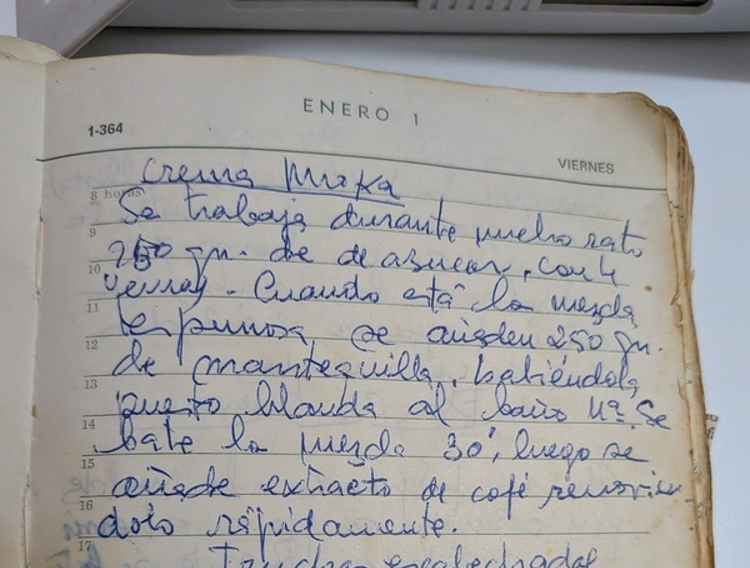 ENERO 1
1-364
VIERNES
Crema Moka
8 horas
Se trabaja durante mucho rato
9
250 gr. de de azucar, con 4
10
yemas. Cuando está la mezcla
11
espumosa se añaden 250 gr.
12
de mantequilla, batiéndola
13
puesto blanda al baño Mª. Se
14
bate la mezcla 30', luego se
15
añade extracto de café removien
16
dolo rápidamente.
17
Truchas escabechadas